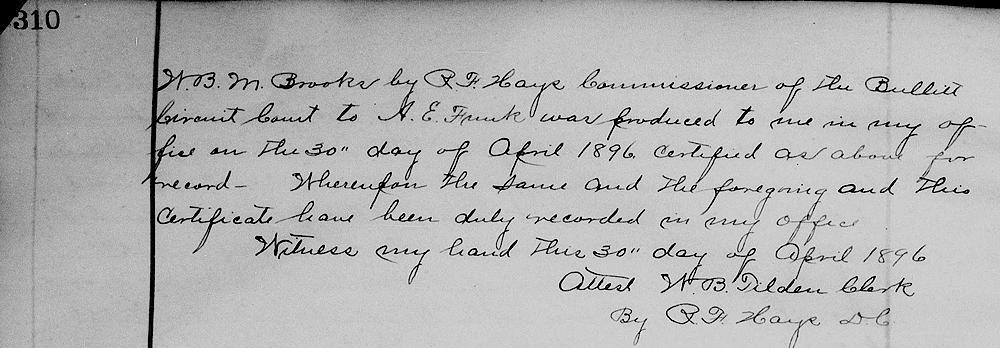 310
W. B. M. Brooks by R. F. Hays Commissioner of the Bullitt
Circuit Court to A. E. Funk was produced to me in my of-
fise on the 30" day of April 1896 certified as above for
record - Whereupon the same and the foregoing and this
Certificate have been duly recorded in my office
Witness my hand this 30" day of April 1896
Attest W. B. Tilden Clerk
By R. F. Hays D.C.